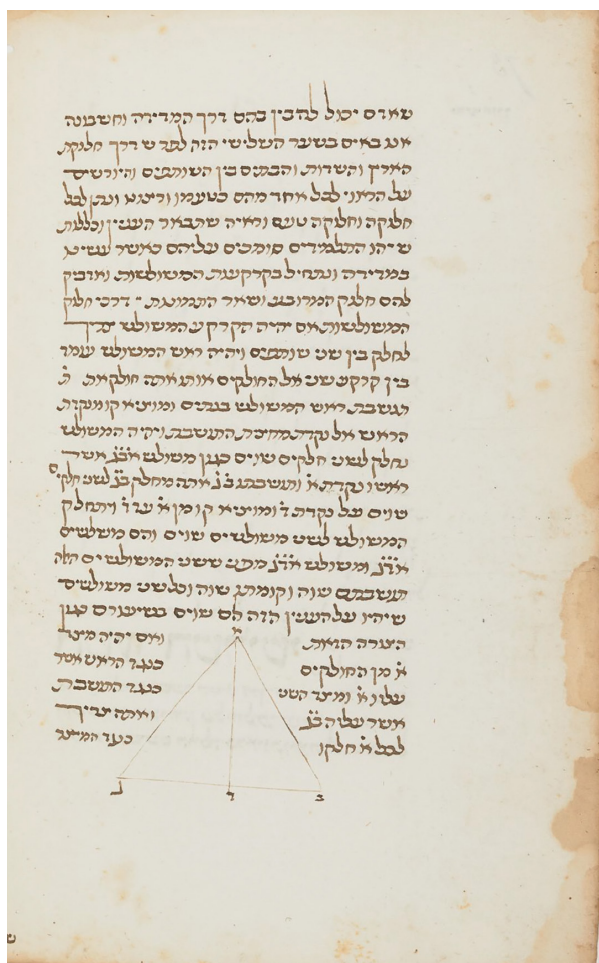 שאדם יכול להבין בהם דרך המדידה וחשבונה
אנו באים בשער השלישי הזה לפרש דרך חלוקת
הארץ והשדות והבתים בין השותפים והיורשים
על הראוי לכל אחד מהם כטעמו ודינו ונתן לכל
חלוקה וחלוקה טעם וראיה שתבאר הענין וכללות
שיהו התלמידים סומכים עליהם כאשר עשינו
במדידה ונתחיל בקרקעות המשולשות ואדביק
להם חלוק המרובע ושאר התמונות דרכי חלוק
המשולשות אם יהיה הקרקע המשולש צריך
לחלק בין שני שותפים ויהיה ראש המשולש עומד
בין קרקע שני אל החולקים אותו אתה חולק את ת
תשבת ראש המשולש בנתים ומוציא קו מנקדת
הראש אל נקדת מחצית התשבת ויהיה המשולש
נחלק לשני חלקים שוים כגון משולש אבג אשר
ראשו נקדת א ותשבתו בג אתה מחלק בג לשני חלקים
שוים על נקדת ד ומוציא קו מן א עד ד ויתחלק
המשולש לשני משולשים שוים והם משולשים
אבד ומשולש אדג מפני ששני המשולשים האלה
תשבתם שוה וקומתם שוה וכל שני משולשים
שיהיו על הענין הזה הם שוים בשיעורם כגון
הצורה הזאת ואם יהיה מיצר
א מן החולקים כנגד הראש אשר
עליו א ומיצר השני כנגד התשבת
אשר עליה בג ואתה צריך
לכל א חלקו המיצר
א
ב ד ג